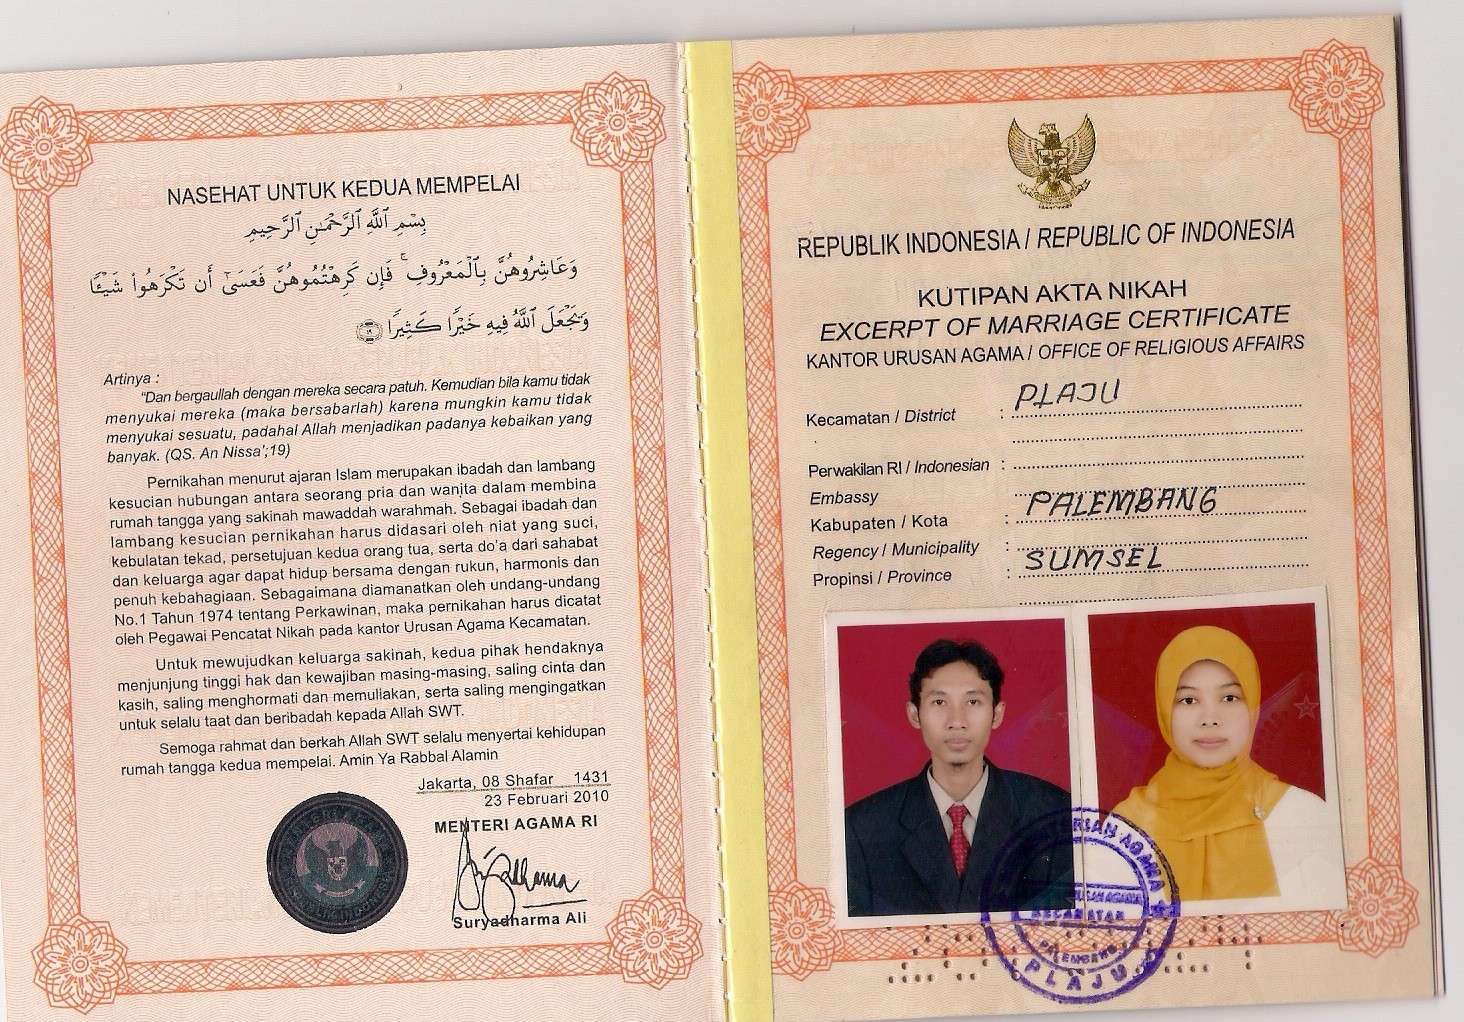 NASEHAT UNTUK KEDUA MEMPELAI
بِسْمِ ٱللَّهِ ٱلرَّحْمَٰنِ ٱلرَّحِيمِ
وَعَاشِرُوهُنَّ بِٱلْمَعْرُوفِ ۚ فَإِن كَرِهْتُمُوهُنَّ فَعَسَىٰٓ أَن تَكْرَهُوا۟ شَيْـًٔا
وَيَجْعَلَ ٱللَّهُ فِيهِ خَيْرًا كَثِيرًا ١٩
Artinya :
"Dan bergaullah dengan mereka secara patuh. Kemudian bila kamu tidak
menyukai mereka (maka bersabarlah) karena mungkin kamu tidak
menyukai sesuatu, padahal Allah menjadikan padanya kebaikan yang
banyak. (QS. An Nissa';19)
Pernikahan menurut ajaran Islam merupakan ibadah dan lambang
kesucian hubungan antara seorang pria dan wanita dalam membina
rumah tangga yang sakinah mawaddah warahmah. Sebagai ibadah dan
lambang kesucian pernikahan harus didasari oleh niat yang suci,
kebulatan tekad, persetujuan kedua orang tua, serta do'a dari sahabat
dan keluarga agar dapat hidup bersama dengan rukun, harmonis dan
penuh kebahagiaan. Sebagaimana diamanatkan oleh undang-undang
No.1 Tahun 1974 tentang Perkawinan, maka pernikahan harus dicatat
oleh Pegawai Pencatat Nikah pada kantor Urusan Agama Kecamatan.
Untuk mewujudkan keluarga sakinah, kedua pihak hendaknya
menjunjung tinggi hak dan kewajiban masing-masing, saling cinta dan
kasih, saling menghormati dan memuliakan, serta saling mengingatkan
untuk selalu taat dan beribadah kepada Allah SWT.
Semoga rahmat dan berkah Allah SWT selalu menyertai kehidupan
rumah tangga kedua mempelai. Amin Ya Rabbal Alamin
Jakarta, 08 Shafar 1431
23 Februari 2010
MENTERI AGAMA RI
Suryadharma Ali
REPUBLIK INDONESIA / REPUBLIC OF INDONESIA
KUTIPAN AKTA NIKAH
EXCERPT OF MARRIAGE CERTIFICATE
KANTOR URUSAN AGAMA / OFFICE OF RELIGIOUS AFFAIRS
Kecamatan / District : PLAJU
Perwakilan RI / Indonesian :
Embassy
Kabupaten / Kota : PALEMBANG
Regency / Municipality
Propinsi / Province : SUMSEL
AGAMA
KECAMATAN
PALEMBANG
PLAJU